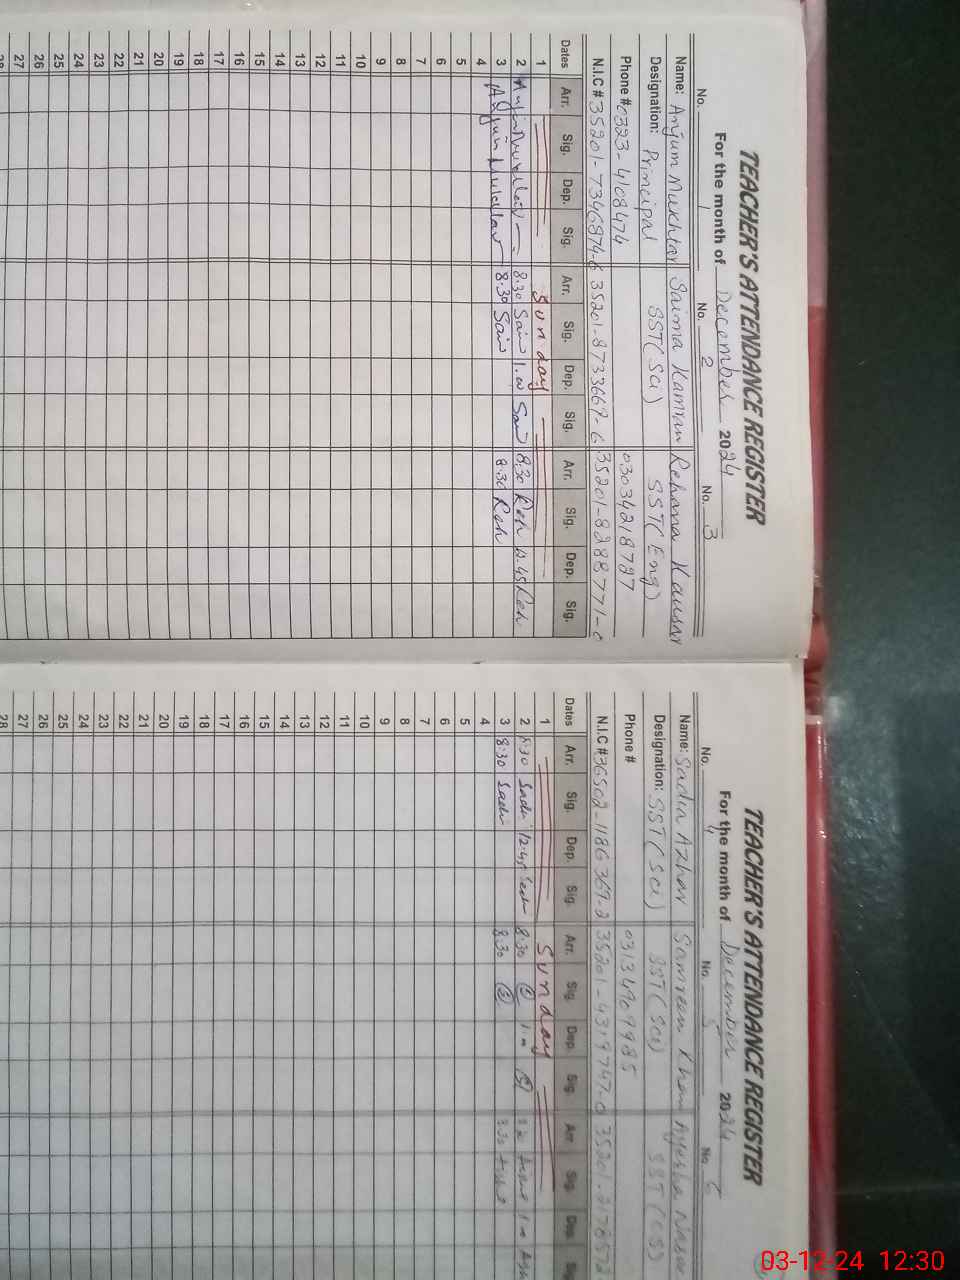 TEACHER'S ATTENDANCE REGISTER
For the month of December 2024
No. 1 No. 2 No. 3
Name: Anjum Mukhtar Saima Kamran Rehana Kausar
Designation: Principal SST(Sci) SST(Eng)
Phone # 0323-4108474 03034218727
N.I.C # 35201-7346974-6 35201-8733669-6 35201-8288771-
Dates Arr. Sig. Dep. Sig. Arr. Sig. Dep. Sig. Arr. Sig. Dep. Sig.
1 Sunday
2 8:30 Sai 1.00 Sai 8:30 Reh 12.45 Reh
3 8:30 Sai 8:30 Reh
4
5
6
7
8
9
10
11
12
13
14
15
16
17
18
19
20
21
22
23
24
25
26
27
28
TEACHER'S ATTENDANCE REGISTER
For the month of December 2024
No. 4 No. 5 No. 6
Name: Sadia Azhar Samreen Khan Ayesha
Designation: SST(Sci) SST(Sci) SST
Phone # 03134969985
N.I.C # 36502-1186369-2 35201-4319747-0 35201-
Dates Arr. Sig. Dep. Sig. Arr. Sig. Dep. Sig. Arr Sig. Dep. Sig.
1 Sunday
2 8:30 Sadi 12:45 Sadi 8:30
3 8:30 Sadi 8:30
4
5
6
7
8
9
10
11
12
13
14
15
16
17
18
19
20
21
22
23
24
25
26
27
28
03-12-24 12:30